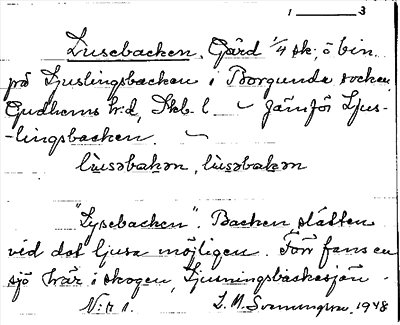 1 ——— 3
Lusebacken, Gård 1/4 sk; ö bin
på Ljuslingsbacken i Borgunda socken
Gudhems h:d, Skb. l ~ Jämför Ljus-
-lingsbacken. ~
lùsəbakən, lùsəbakən
"Lysebacken". Backen, slätten
vid det ljusa möjligen. Förr fans en
sjö här i skogen, Ljusningsbackasjön.
N:r 1. 1948